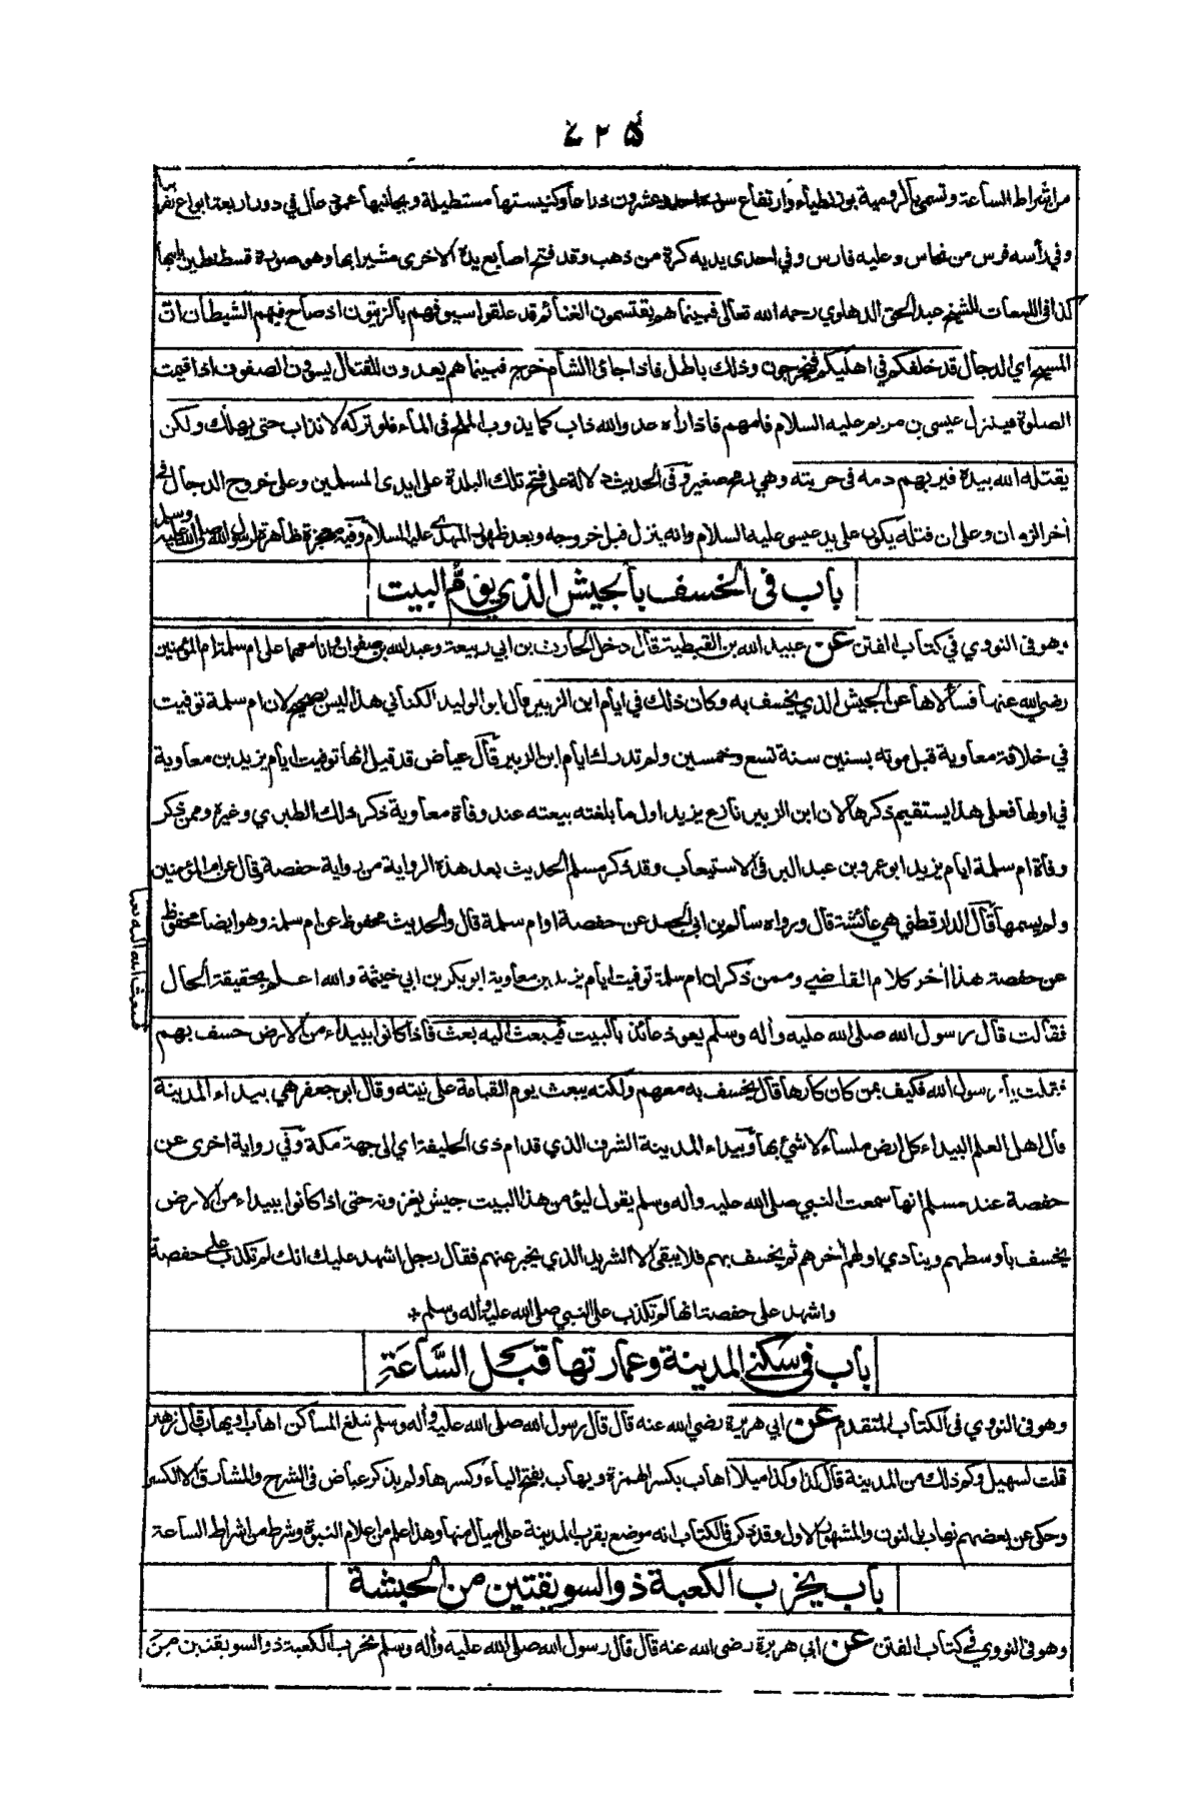 ٤٢٥
من اشراط الساعة وتسمى بالرومية بوزنطياء وارتفاع سوره احد وعشرون ذراعا وكنيستها مستطيلة وبجانبها عمود عال في دور اربعة ابواع تقريبا
وفي رأسه فرس من نحاس وعليه فارس وفي احدى يديه كرة من ذهب وقد فتح اصابع يده الاخرى مشيرا بها وهو صورة قسطنطين بانيها
كذا في اللمعات للشيخ عبد الحق الدهلوي رحمه الله تعالى فبينما هم يقتسمون الغنائم قد علقوا سيوفهم بالزيتون اذ صاح فيهم الشيطان ان
المسيح اي الدجال قد خلفكم في اهليكم فيخرجون وذلك باطل فاذا جاؤا الشأم خرج فبينما هم يعدون للقتال يسوون الصفوف اذا قيمت
الصلوة فينزل عيسى بن مريم عليه السلام فامهم فاذا رأه عدو الله ذاب كما يذوب الملح في الماء فلو تركه لانذاب حتى يهلك ولكن
يقتله الله بيده فيريهم دمه في حربته وهي رمح صغير وفي الحديث دلالة على فتح تلك البلدة على ايدي المسلمين وعلى خروج الدجال في
أخر الزمان وعلى ان قتله يكون على يد عيسى عليه السلام وانه ينزل قبل خروجه وبعد ظهور المهدي عليه السلام وفيه معجزة ظاهرة لرسول الله صلى الله عليه وسلم
باب فى الخسف بالجيش الذي يؤم البيت
وهو فى النووي في كتاب الفتن عن عبيد الله بن القبطية قال دخل الحارث بن ابي ربيعة وعبد الله بن صفوان وانا معهما على ام سلمة ام المؤمنين
رضي الله عنها فسألاها عن الجيش الذي يخسف به وكان ذلك في ايام ابن الزبير قال ابو الوليد الكناني هذا ليس بصحيح لان ام سلمة توفيت
في خلافة معاوية قبل موته بسنين سنة تسع وخمسين ولم تدرك ايام ابن الزبير قال عياض قد قيل انها توفيت ايام يزيد بن معاوية
في اولها فعلى هذا يستقيم ذكرها لان ابن الزبير نازع يزيد اول ما بلغته بيعته عند وفاة معاوية ذكر ذلك الطبري وغيره وممن ذكر
وفاة ام سلمة ايام يزيد ابو عمرو بن عبد البر فى الاستيعاب وقد ذكر مسلم الحديث بعد هذه الرواية من رواية حفصة وقال عن ام المؤمنين
ولم يسمها قال الدارقطني هي عائشة قال ورواه سالم بن ابي الجعد عن حفصة او ام سلمة قال والحديث محفوظ عن ام سلمة وهو ايضا محفوظ
عن حفصة هذا أخر كلام القاضي وممن ذكر ان ام سلمة توفيت ايام يزيد بن معاوية ابو بكر بن ابي خيثمة والله اعلم بحقيقة الحال
فقالت قال رسول الله صلى الله عليه وأله وسلم يعوذ عائذ بالبيت فيبعث اليه بعث فاذا كانوا ببيداء من الارض خسف بهم
فقلت يا رسول الله فكيف بمن كان كارها قال يخسف به معهم ولكنه يبعث يوم القيامة على نيته وقال ابو جعفر هي بيداء المدينة
قال اهل العلم البيداء كل ارض ملساء لا شئ بها وبيداء المدينة الشرف الذي قدام ذى الحليفة اي الى جهة مكة وفي رواية اخرى عن
حفصة عند مسلم انها سمعت النبي صلى الله عليه وأله وسلم يقول ليؤمن هذا البيت جيش يغزونه حتى اذا كانوا ببيداء من الارض
يخسف باوسطهم وينادي اولهم أخرهم ثم يخسف بهم فلا يبقى الا الشريد الذي يخبر عنهم فقال رجل اشهد عليك انك لم تكذب على حفصة
واشهد على حفصة انها لم تكذب على النبي صلى الله عليه وأله وسلم
باب في سكنى المدينة وعمارتها قبل الساعة
وهو فى النووي فى الكتاب المتقدم عن ابي هريرة رضي الله عنه قال قال رسول الله صلى الله عليه وأله وسلم تبلغ المساكن اهاب او يهاب قال زهير
قلت لسهيل وكم ذلك من المدينة قال كذا وكذا ميلا اهاب بكسر الهمزة ويهاب بفتح الياء وكسرها ولم يذكر عياض فى الشرح والمشارق الا الكسر
وحكى عن بعضهم نهاب بالنون والمشهور الاول وقد ذكر فى الكتاب انه موضع بقرب المدينة على اميال منها وهذا علم من اعلام النبوة وشرط من اشراط الساعة
باب يخرب الكعبة ذو السويقتين من الحبشة
وهو فى النووي في كتاب الفتن عن ابي هريرة رضى الله عنه قال قال رسول الله صلى الله عليه وأله وسلم يخرب الكعبة ذو السويقتين من